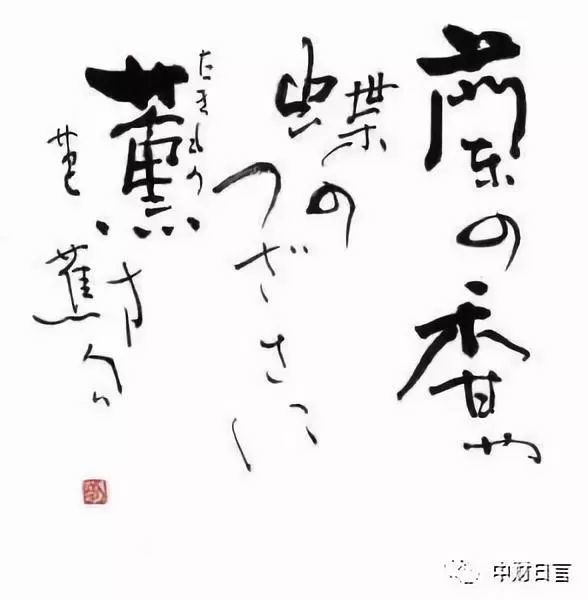 蘭の香や
蝶の
つばさに
たきもの
薫す
芭蕉
句
中财日言